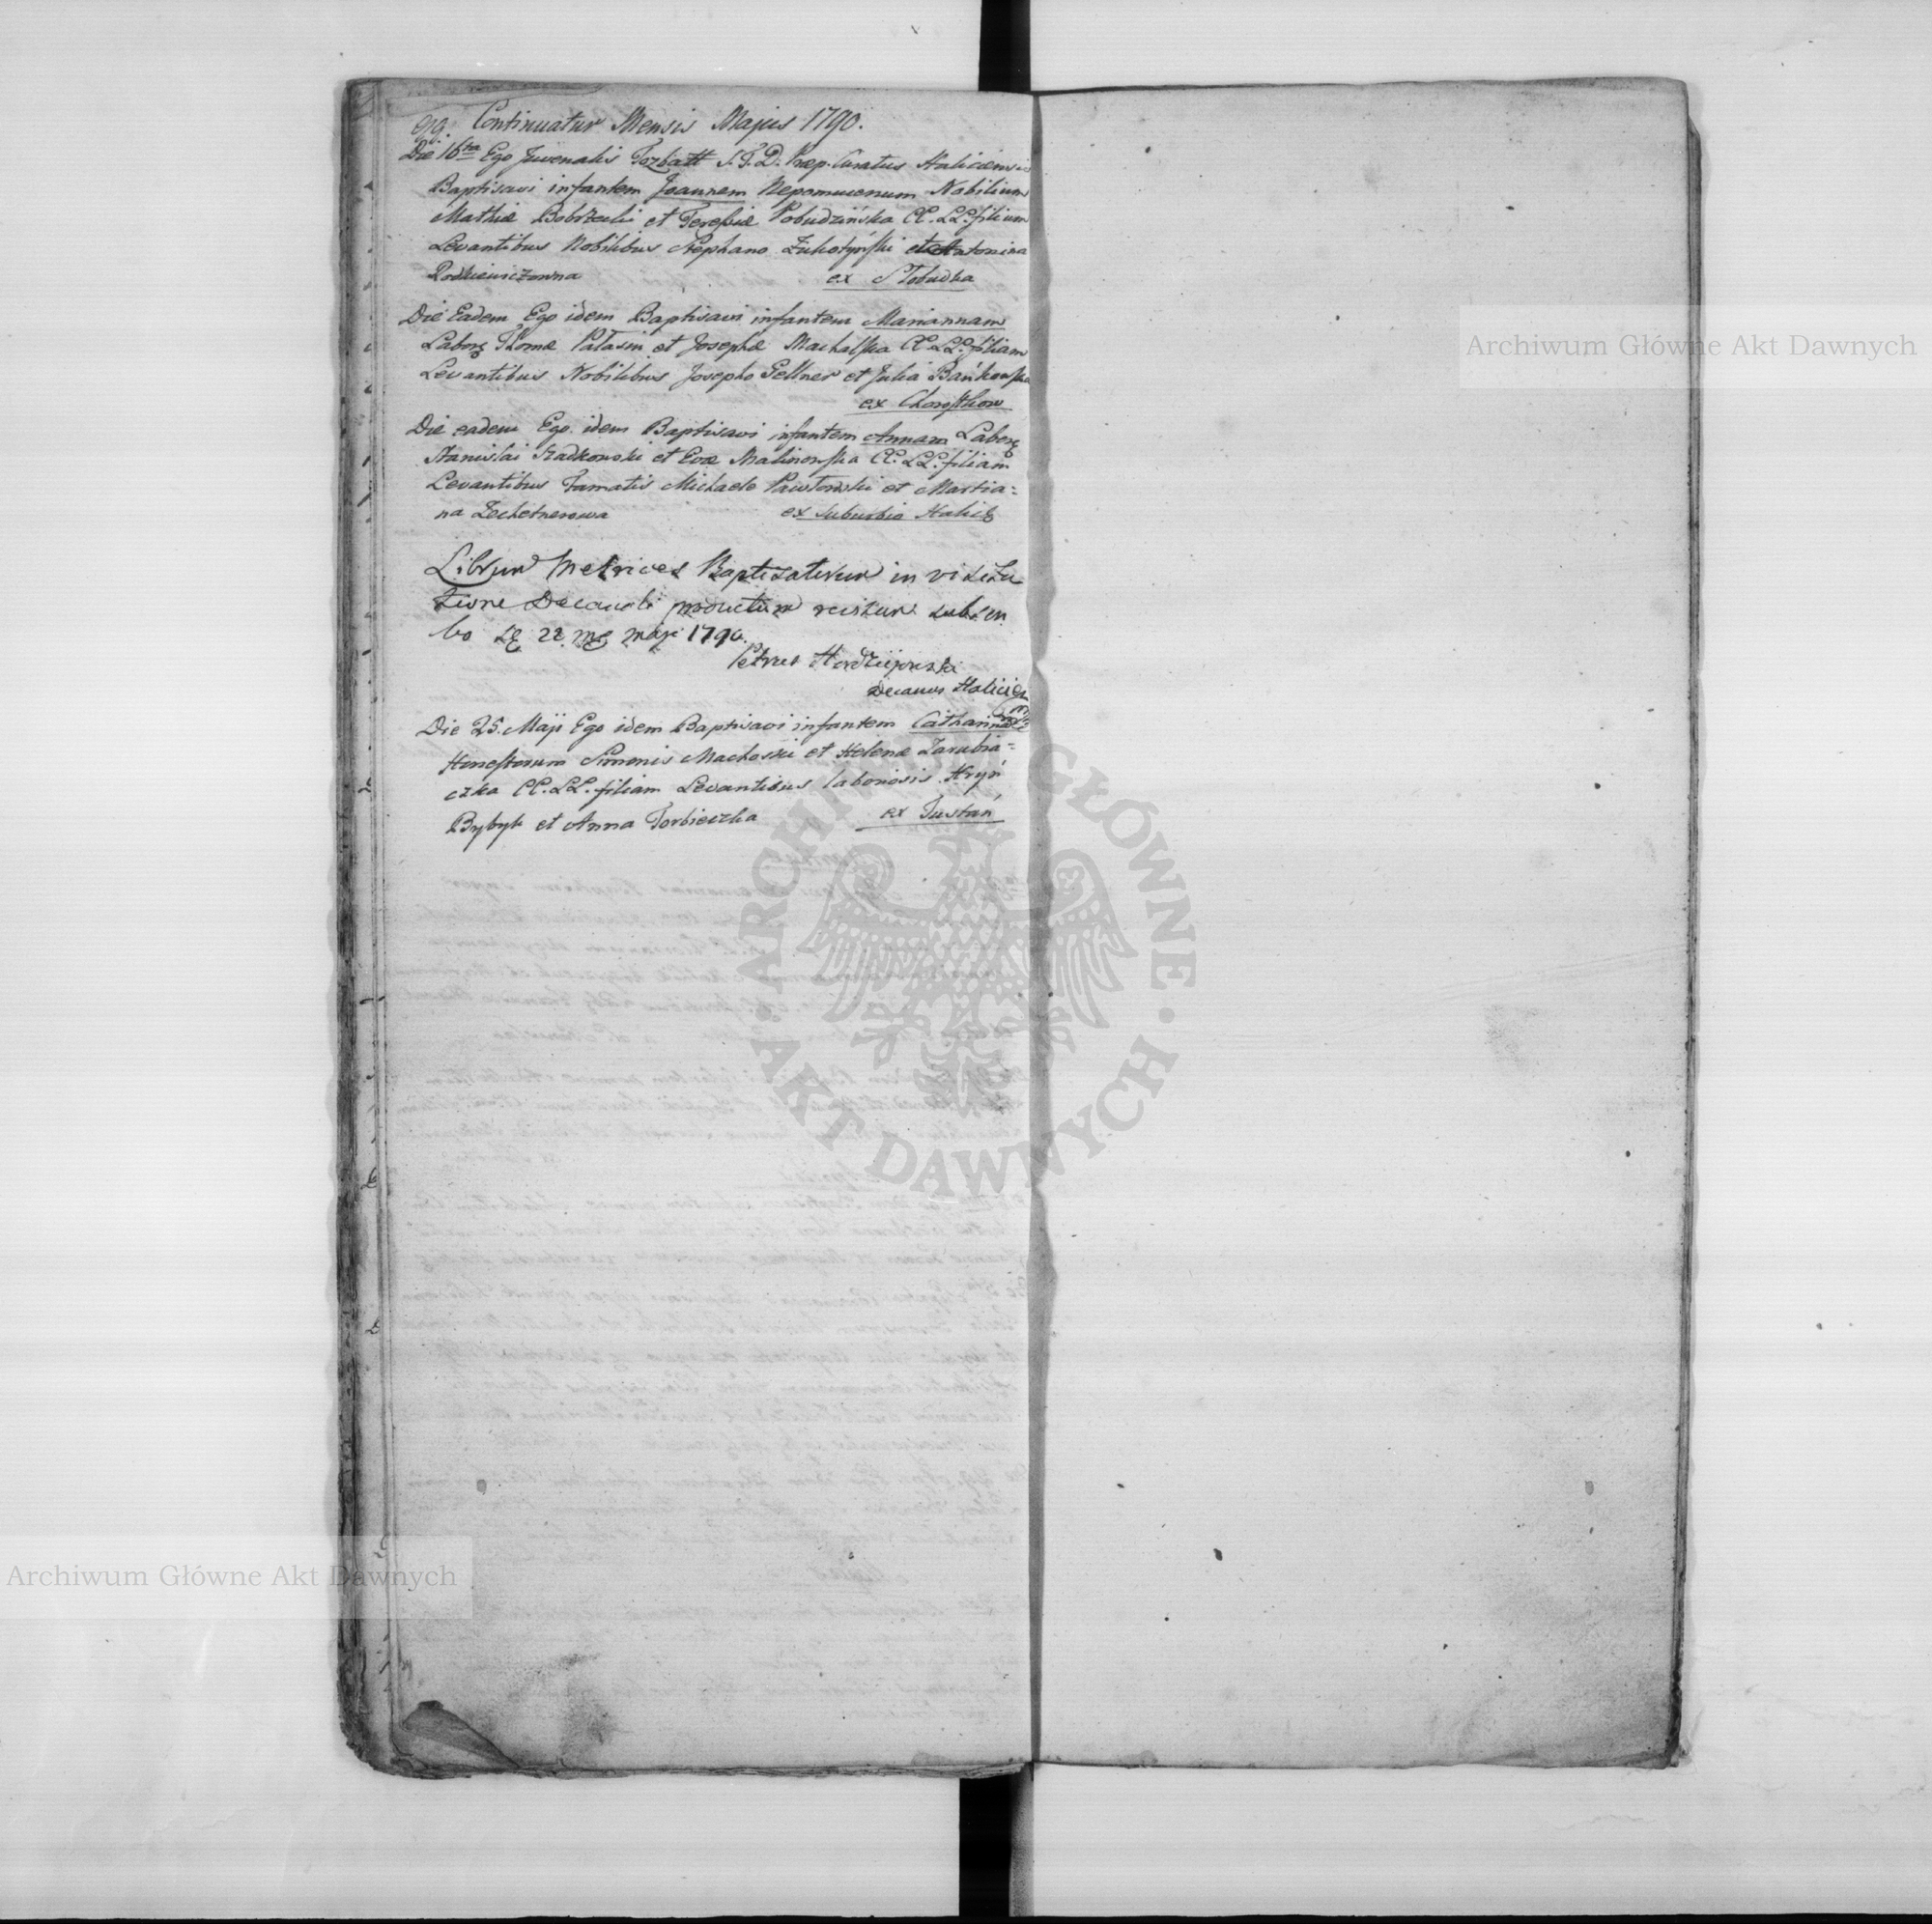 99. Continuatur Mensis Majus 1790.
Die 16ta Ego Juvenalis Torbatt S.T.D. Præp. Curatus Haliciensis
Baptisavi infantem Joannem Nepomucenum Nobilium
Mathiæ et Teressiæ Pobudzińska CC. LL. filium
Levantibus Nobilibus Stephano Żukotyński et Antonina
ex Stobudka
Die Eadem Ego idem Baptisavi infantem Mariannam
Labor Thomæ et Josephæ Machalska CC. LL. filiam
Levantibus Nobilibus Josepho Gellner et Julia Bańkowska
ex Chorostkow
Die eadem Ego idem Baptisavi infantem Annam Labor
Stanislai Szadkowski et Evæ Malinowska CC. LL. filiam
Levantibus Famatis Michaele Pawłowski et Martia=
na Zechetnerowa ex suburbio Halic
Librum Metrices Baptizatorum in visita
tione Decanali productum subscri
bo 22 Maji 1790.
Petrus
Decanus Halicien
Die 25. Maji Ego idem Baptisavi infantem Catharinam
Honestorum Simonis Machoski et Helenæ Zarubia=
czka CC. LL. filiam Levantibus laboriosis Hryń
Bybyk et Anna Torbieczka ex Tustań
Archiwum Główne Akt Dawnych
ARCHIWUM GŁÓWNE · AKT DAWNYCH ·
Archiwum Główne Akt Dawnych